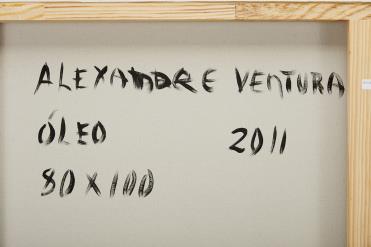 ALEXANDRE VENTURA
ÓLEO 2011
80 X 100